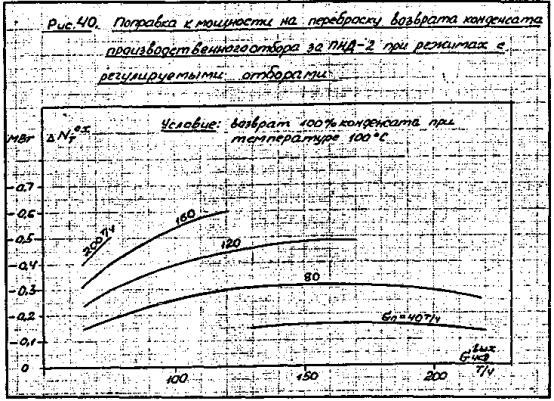 Рис.40. Поправка к мощности на переброску возврата конденсата
производственного отбора за ПНД-2 при режимах с
регулируемыми отборами
МВт
ΔNт
Условие: возврат 100% конденсата при
температуре 100°С
-0,7
-0,6
-0,5
-0,4
-0,3
-0,2
-0,1
0
200 т/ч
160
120
80
Gп=40 т/ч
100
150
200
т/ч